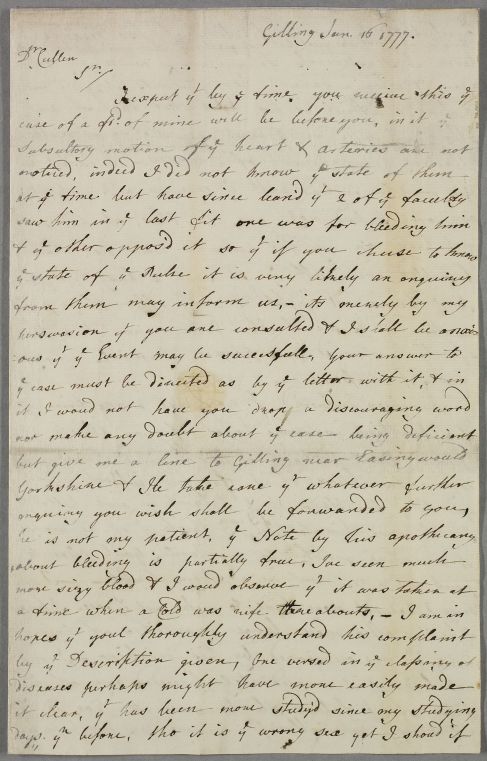 Gilling Jan. 16 1777.
Dr. Cullen
Sr/
I expect yt by ye time you receive this ye
case of a frd. of mine will be before you, in it ye
Subsultory motion of ye heart & arteries are not
noticed, indeed I did not know ye state of them
at ye time but have since heard yt 2 of ye faculty
saw him in ye last fit one was for bleeding him
& ye other oppos'd it so yt if you chuse to know
ye state of ye Pulse it is very likely an enquiery
from them may inform us, – its merely by my
perswasion yt you are consulted & I shall be anxi-
ous yt ye Event may be succesfull, your answer to
ye case must be directed as by ye letter with it, & in
it I woud not have you drop a discouraging word
nor make any doubt about ye case being deficient
but give me a line to Gilling near Easingwould
Yorkshire & Ile take care yt whatever further
enquiry you wish shall be forwarded to you,
he is not my patient, ye Note by his apothecary
about bleeding is partially true, I've seen much
more sizy blood & I woud observe yt it was taken at
a time when a Cold was rife thereabouts, – I am in
hopes yt youl thoroughly understand his complaint
by ye Description given, One versed in ye classing of
diseases perhaps might have more easily made
it clear, yt has been more studyd since my studying
days yn before, tho it is ye wrong sex yet I shoud if